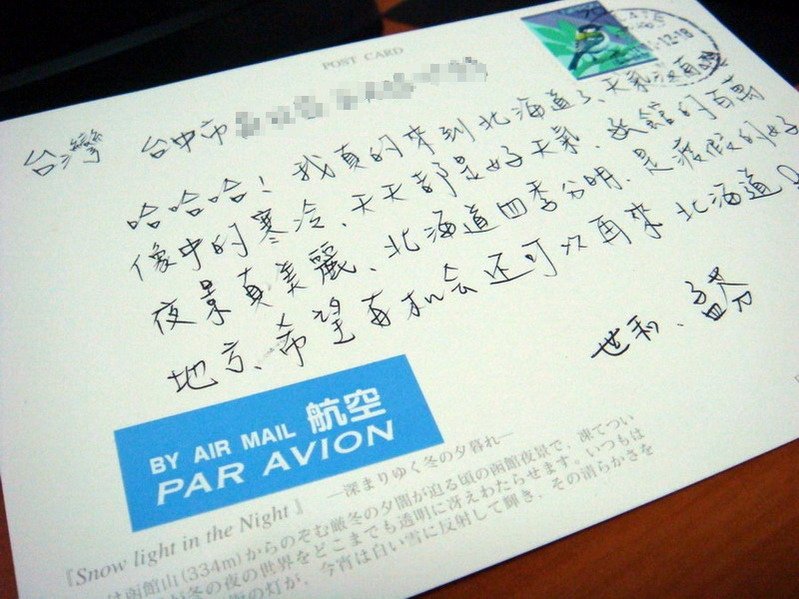 POST CARD
台灣 台中市
哈哈哈！我真的來到北海道了、天氣沒有想
像中的寒冷、天天都是好天氣、函館的百萬
夜景真美麗、北海道四季分明、是渡假的好
地方、希望有机会还可以再來北海道！
世利、
BY AIR MAIL 航空
PAR AVION
『Snow light in the Night』 ―深まりゆく冬の夕暮れ―
は函館山(334m)からのぞむ厳冬の夕闇が迫る頃の函館夜景で、凍てつい
が冬の夜の世界をどこまでも透明に冴えわたらせます。いつもは
の灯が、今宵は白い雪に反射して輝き、その清らかさを